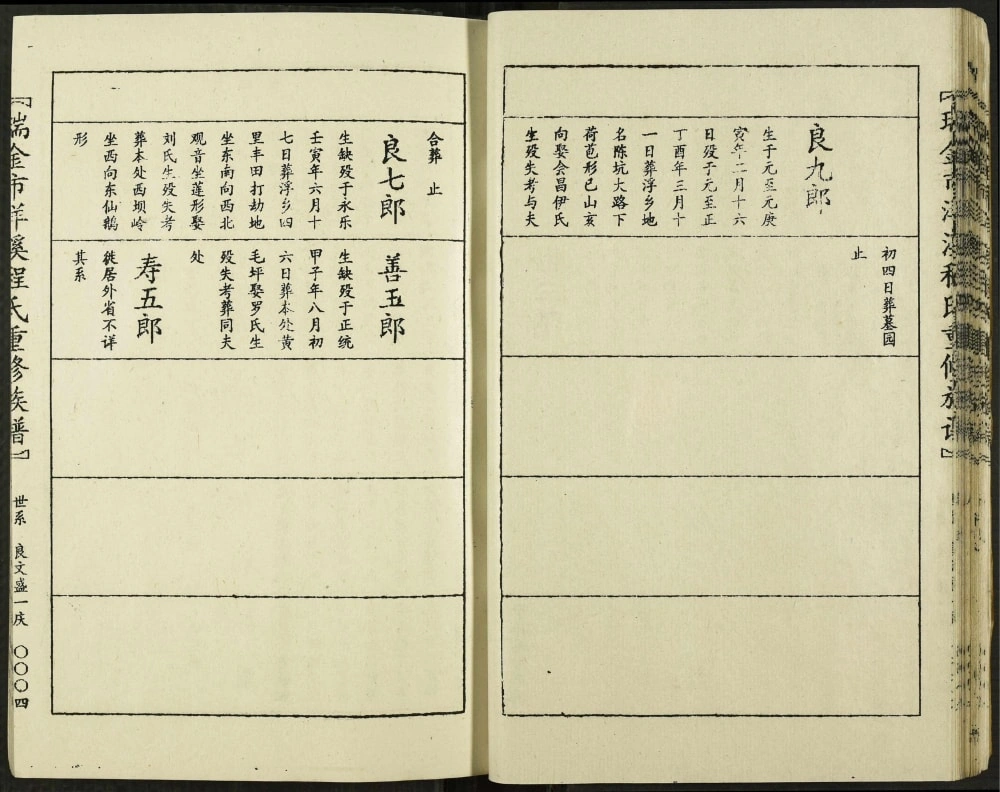 良九郎
生于元至元庚
寅年二月十六
日殁于元至正
丁酉年三月十
一日葬浮乡地
名陈坑大路下
荷苞形已山亥
向娶会昌伊氏
生殁失考与夫
初四日葬墓园
止
合葬 止
良七郎
生缺殁于永乐
壬寅年六月十
七日葬浮乡四
里丰田打劫地
坐东南向西北
观音坐莲形娶
刘氏生殁失考
葬本处西坝岭
坐西向东仙鹅
形
善玉郎
生缺殁于正统
甲子年八月初
六日葬本处黄
毛坪娶罗氏生
殁失考葬同夫
处
寿五郎
徙居外省不详
其系
瑞金市洋溪程氏重修族谱
世系 良文盛一庆 〇〇〇四